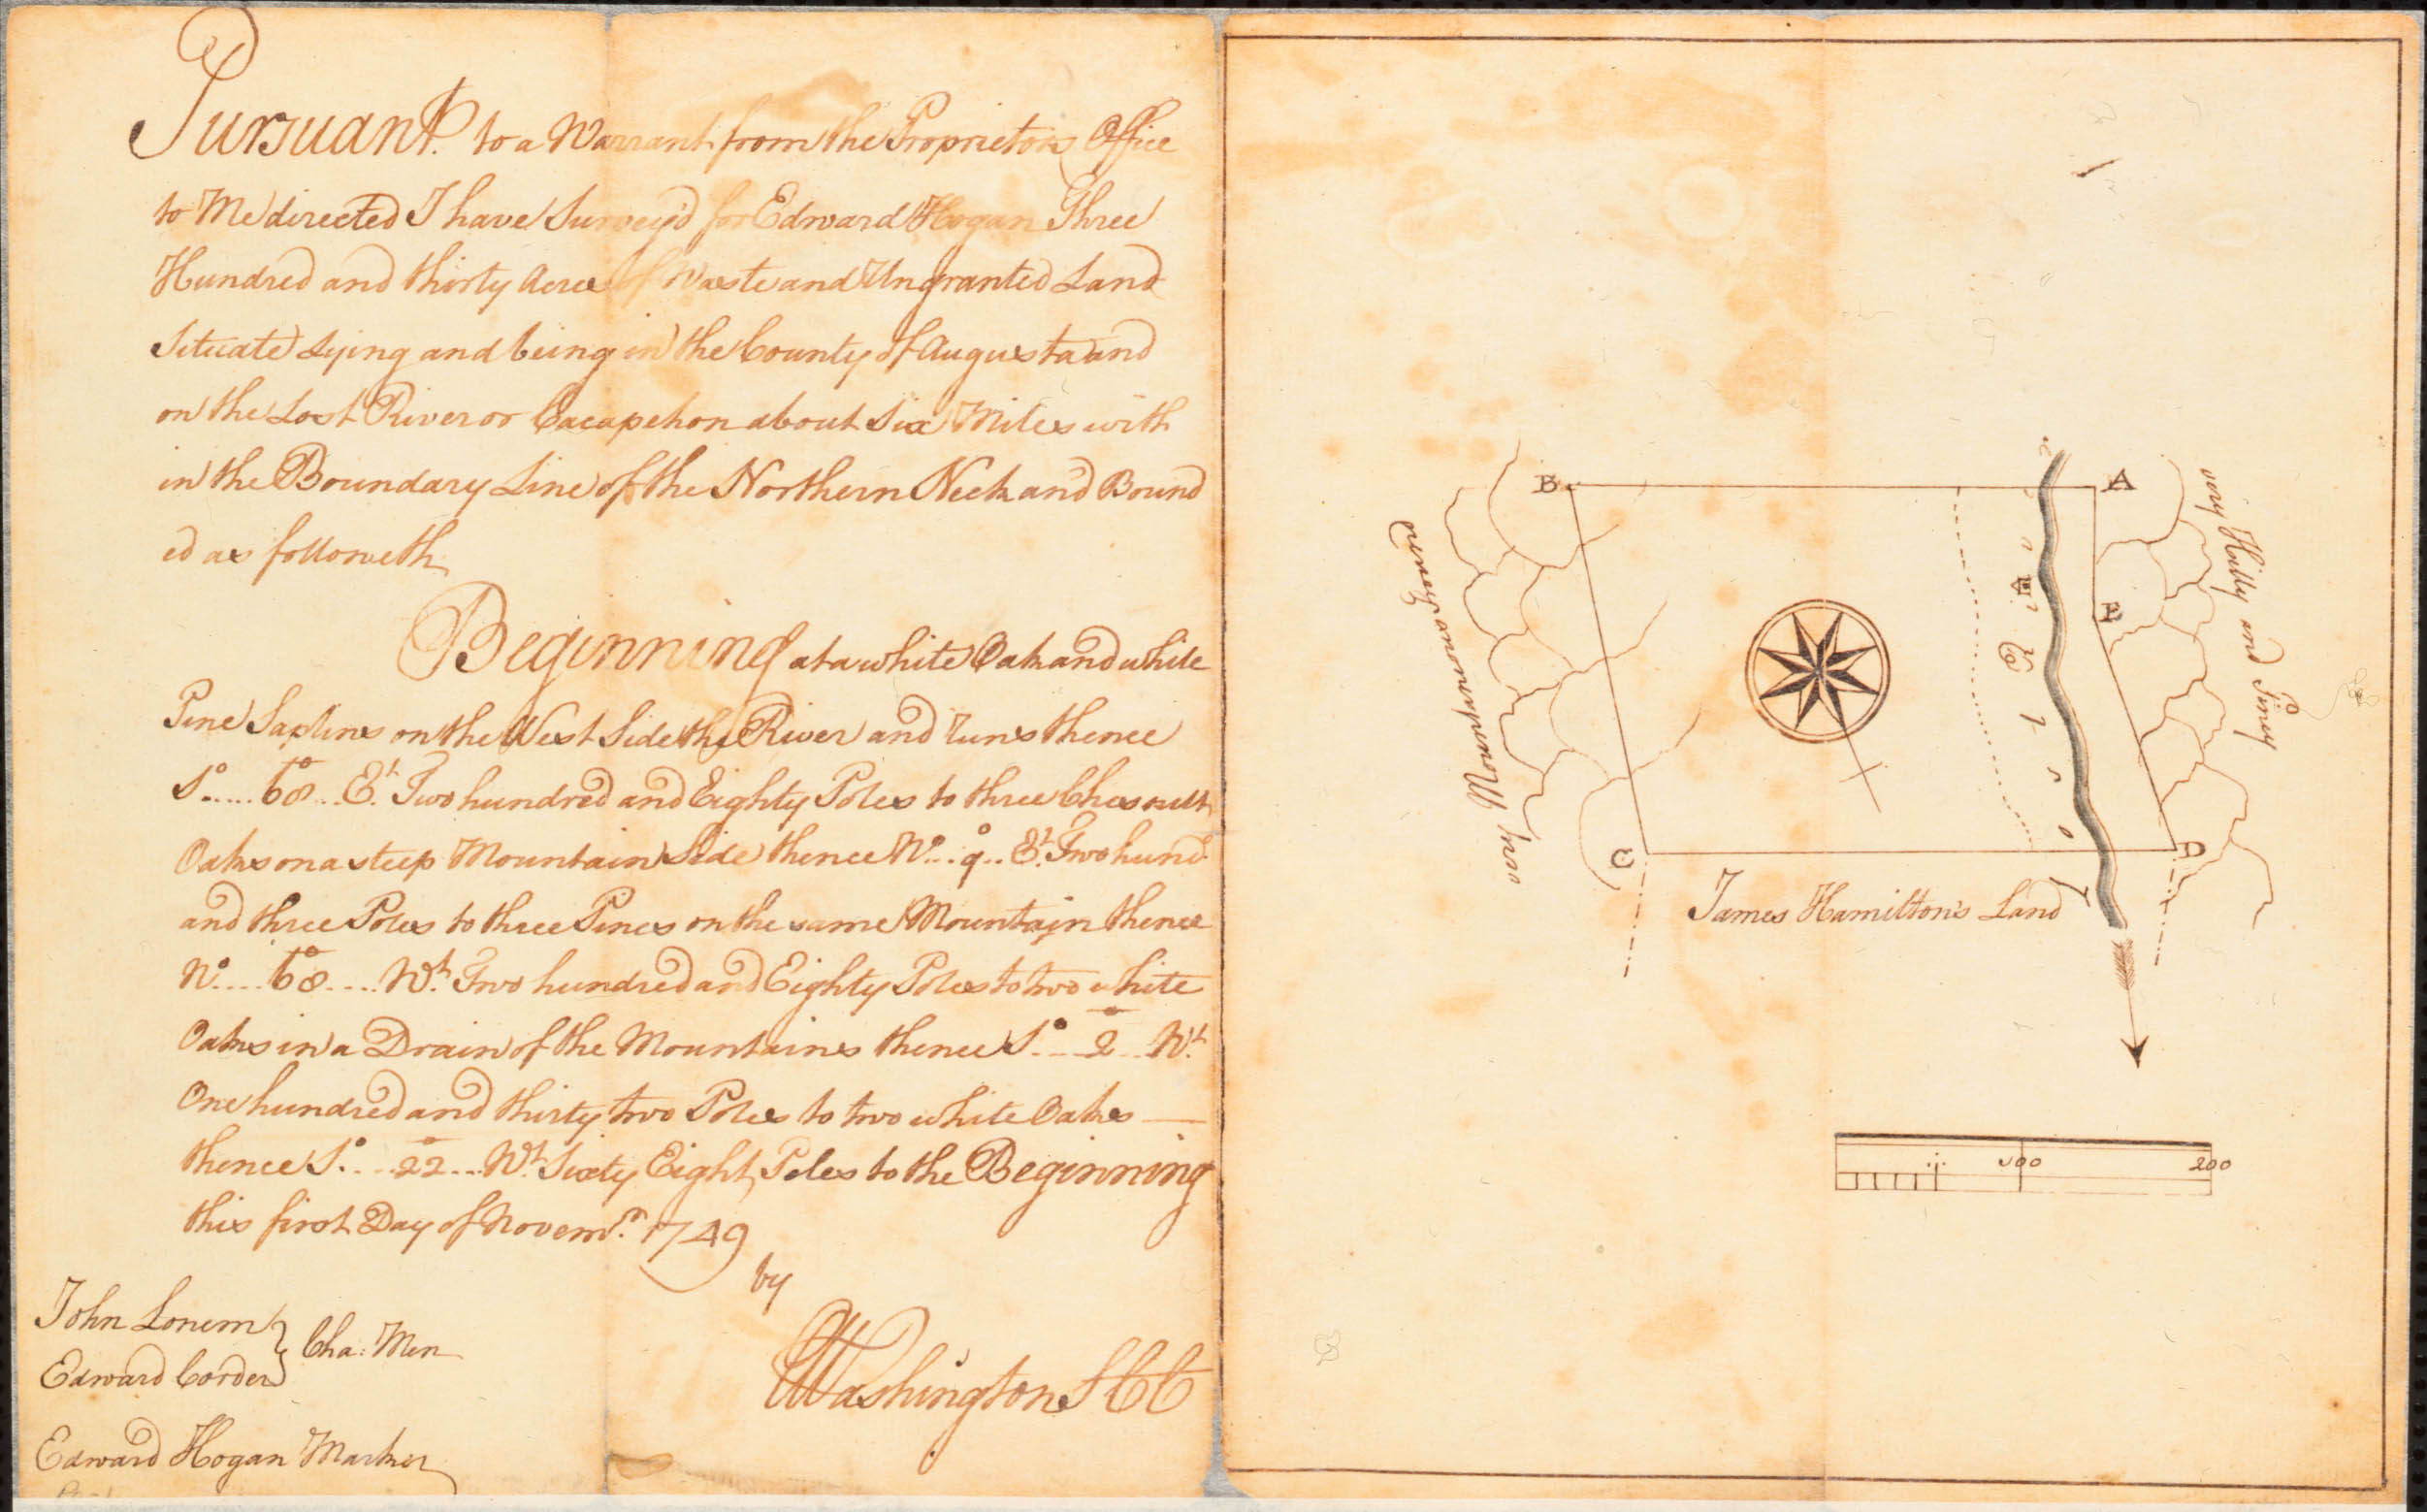 Pursuant. to a Warrant from the Proprietors Office
to Me directed I have Survey'd for Edward Hogan Three
Hundred and thirty Acres of Waste and Ungranted Land
Situate Lying and being in the County of Augusta and
on the Lost River or Cacapehon about Six Miles with
in the Boundary Line of the Northern Neck and Bound
ed as followeth
Beginning at a white Oak and white
Pine Saplins on the West Side the River and runs thence
So..... 68°.. Et. Two hundred and Eighty Poles to three Chesnutt
Oaks on a steep Mountain Side thence No... 9°.. Et. Two hund
and three Poles to three Pines on the same Mountain thence
No.... 68°.... Wt. Two hundred and Eighty Poles to two white
Oaks in a Drain of the Mountains thence So... 2°.. Wt.
One hundred and thirty two Poles to two white Oaks
thence So.... 22°... Wt. Sixty Eight Poles to the Beginning
this first Day of Novemr. 1749
by
GWashington SCC
John Lonem } Cha: Men
Edward Corder
Edward Hogan Marker
B
A
very Hilly and Piney
E
very Mountainous
C
D
James Hamilton's Land
100
200